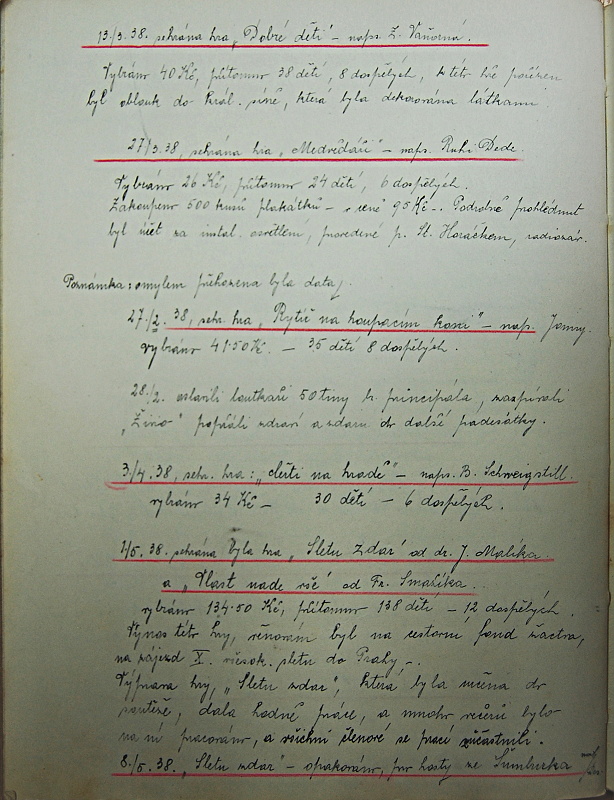 13./3. 38. sehrána hra „Dobré děti" – naps. Z. Vaňorná.
Vybráno 40 Kč, přítomno 38 dětí, 8 dospělých, k této hře pořízen
byl oblouk do král. síně, která byla dekorována látkami
27/3. 38, sehrána hra „Medvědáři" – naps. Ruhi Dede.
Vybráno 26 Kč, přítomno 24 dětí, 6 dospělých.
Zakoupeno 500 kusů plakátků – v ceně 95 Kč –. Podrobně prohlédnut
byl účet za instal. osvětlení, provedené p. St. Horáčkem, radiozáv.
Poznámka: omylem přehozena byla data,
27./2. 38, sehr. hra „Rytíř na houpacím koni" – nap. Jonny.
vybráno 41·50 Kč. – 35 dětí 8 dospělých.
28./2. oslavili loutkaři 50tiny br. principála, zazpívali
„Živio" popřáli zdraví a zdaru do další padesátky.
3/4. 38, sehr. hra: „Čerti na hradě" – naps. B. Schweigstill.
vybráno 34 Kč – 30 dětí – 6 dospělých.
1/5. 38. sehrána byla hra „Sletu zdar" od dr. J. Malíka.
a „Vlast nade vše" od Fr. Smažíka.
vybráno 134·50 Kč, přítomno 138 dětí – 12 dospělých.
Výnos této hry, věnován byl na cestovní fond žactva,
na zájezd X. všesok. sletu do Prahy –.
Výprava hry, „Sletu zdar", která byla určena do
soutěže, dala hodně práce, a mnoho večerů bylo
na ní pracováno, a všichni členové se prací zúčastnili.
8./5. 38. „Sletu zdar" – opakováno, pro hosty ze Šumburka